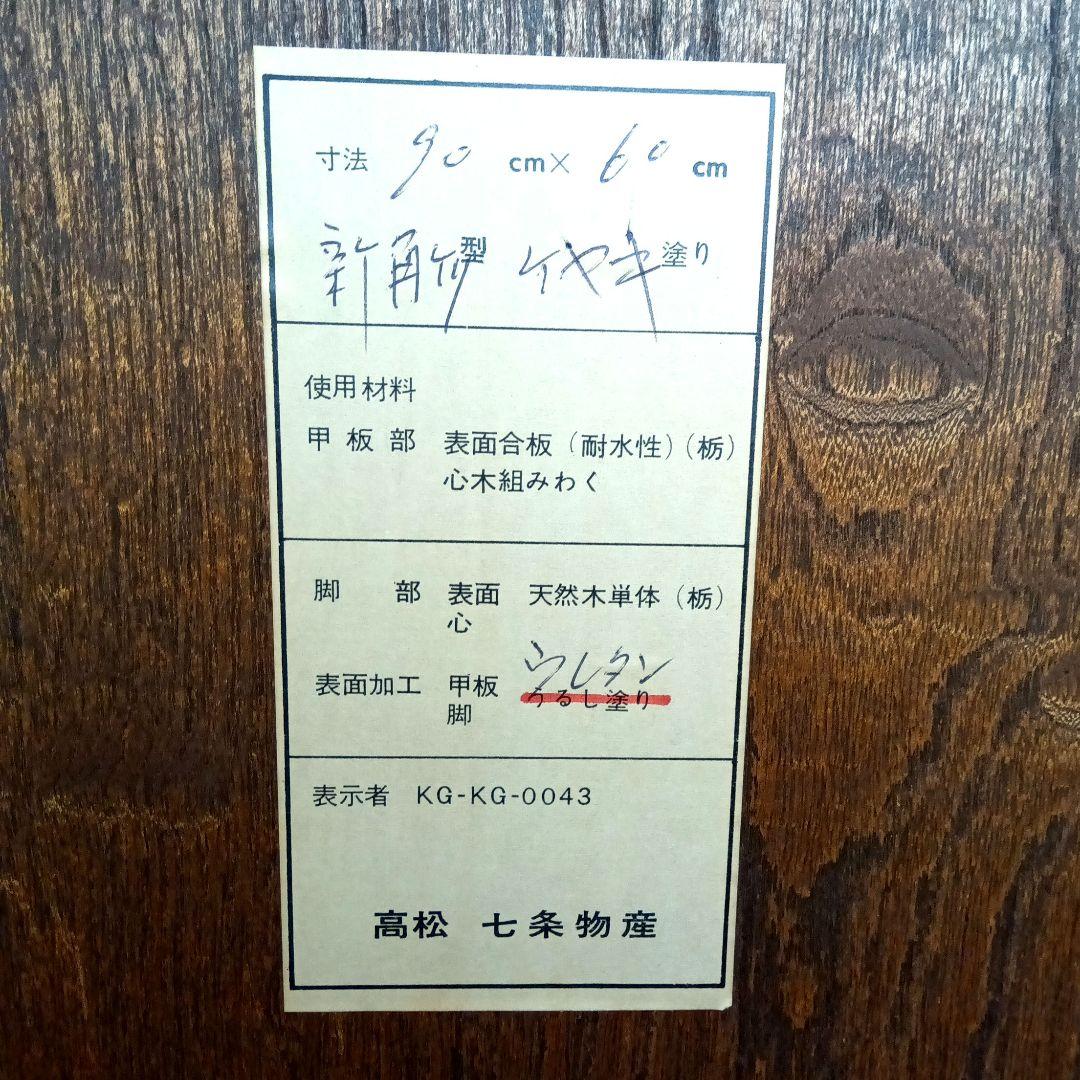 寸法 90 cm× 60 cm
新角 型 ケヤキ 塗り
使用材料
甲板部 表面合板（耐水性）（栃）
心木組みわく
脚 部 表面 天然木単体（栃）
心
ウレタン
表面加工 甲板 うるし塗り
脚
表示者 KG-KG-0043
高松 七条物産